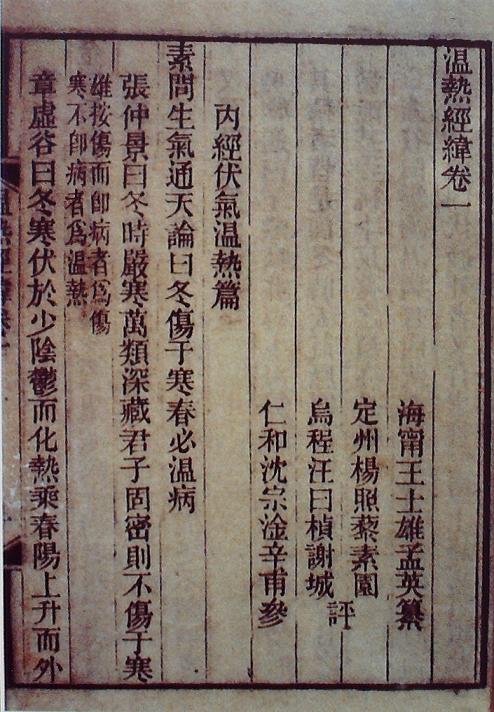 温熱經緯卷一
海甯王士雄孟英纂
定州楊照藜素園
評
烏程汪曰楨謝城
仁和沈宗淦辛甫參
內經伏氣温熱篇
素問生氣通天論曰冬傷于寒春必温病
張仲景曰冬時嚴寒萬類深藏君子固密則不傷于寒
雄按傷而卽病者爲傷
寒不卽病者爲温熱
章虛谷曰冬寒伏於少陰鬱而化熱乘春陽上升而外